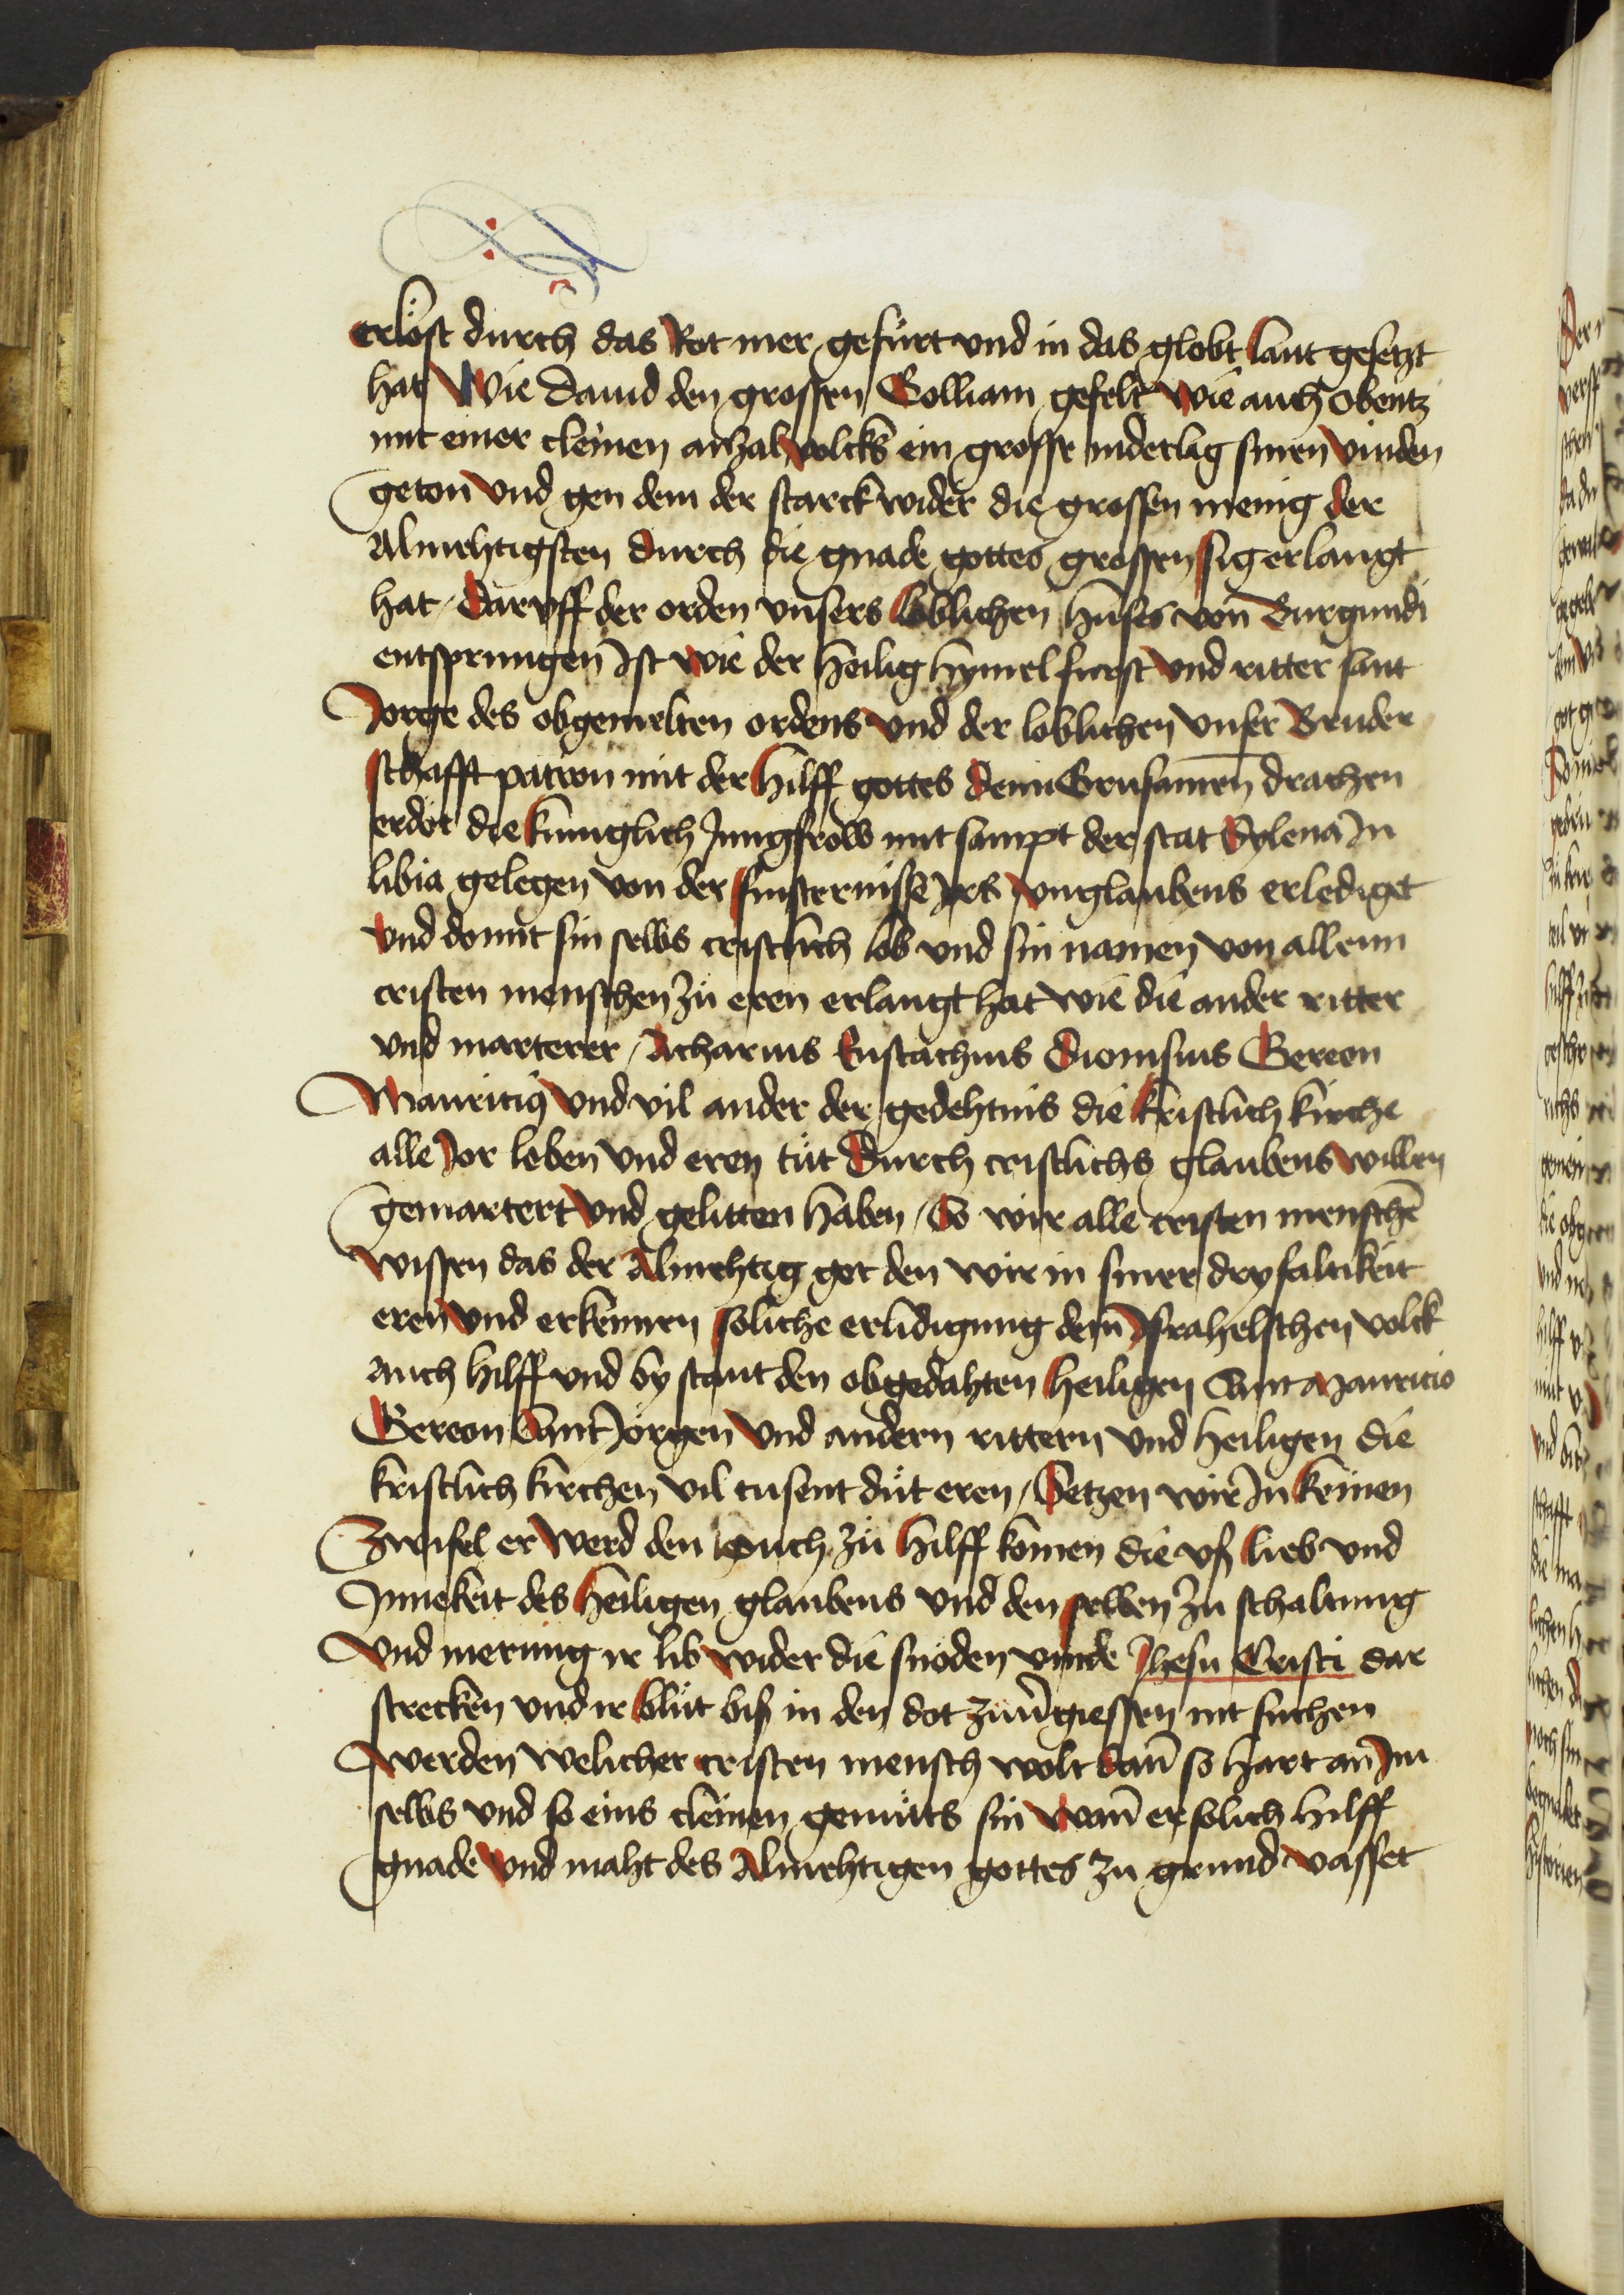 erlöst durch das Rot mer gefürt vnd in das globt lant gesetzt
hat Wie dauid den grossen Golliam gefelt wie auch Obentz
mit einer cleinen anzal volcks ein grosse niderlag sinen vinden
geton vnd gen dem der starck wider die grossen menig der
Almehtigsten durch die gnade gottes grossen sig erlangt
hat / daruff der orden vnsers loblichen huses von Burgundi
entsprungen Ist wie der heilig hymelfurst vnd ritter sant
Jorge des obgemelten ordens vnd der loblichen vnser Bruder
schafft patron mit der hilff gottes dem Grusamen drachen
erdot die kuniglich Jungfrow mit sampt der stat Sylena In
libia gelegen von der finsternisse Irs vnglaubens erlediget
vnd domit sin selbs cristlich lob vnd sin namen von allenn
cristen menschen zu eren erlangt hat wie die ander ritter
vnd marterer / Acharius Eustachius Dionisius Gereon
Mauricius vnd vil ander der gedehtnis die kristlich kirche
alle Jor loben vnd eren tüt durch cristlichs glaubens willen
gemartert vnd gelitten haben / So wir alle cristen menschē
wissen das der Almehtig got den wir in siner dryfaltikeit
eren vnd erkennen soliche erlidigung dem Israhelschen volck
auch hilff vnd by stant den obgedahten heiligen Sant Mauricio
Gereon Sant Jörgen vnd andern rittern vnd heiligen die
kristlich kirchen vil tusent düt eren / Setzen wir In keinen
Zwifel er werd den ouch zü hilff komen die vß lieb vnd
Innekeit des heiligen glaubens vnd den selben zu schaltung
vnd merung ir lib wider die snöden vinde Jhesu Cristi dar
strecken vnd ir blüt biß in den dot zuuergiessen nit fuchen
werden welicher cristen mensch wolt dañ so hart an Im
selbs vnd so eins cleinen gemüts sin wañ er solich hilff
gnade vnd maht des Almehtigen gottes zu grund vasset